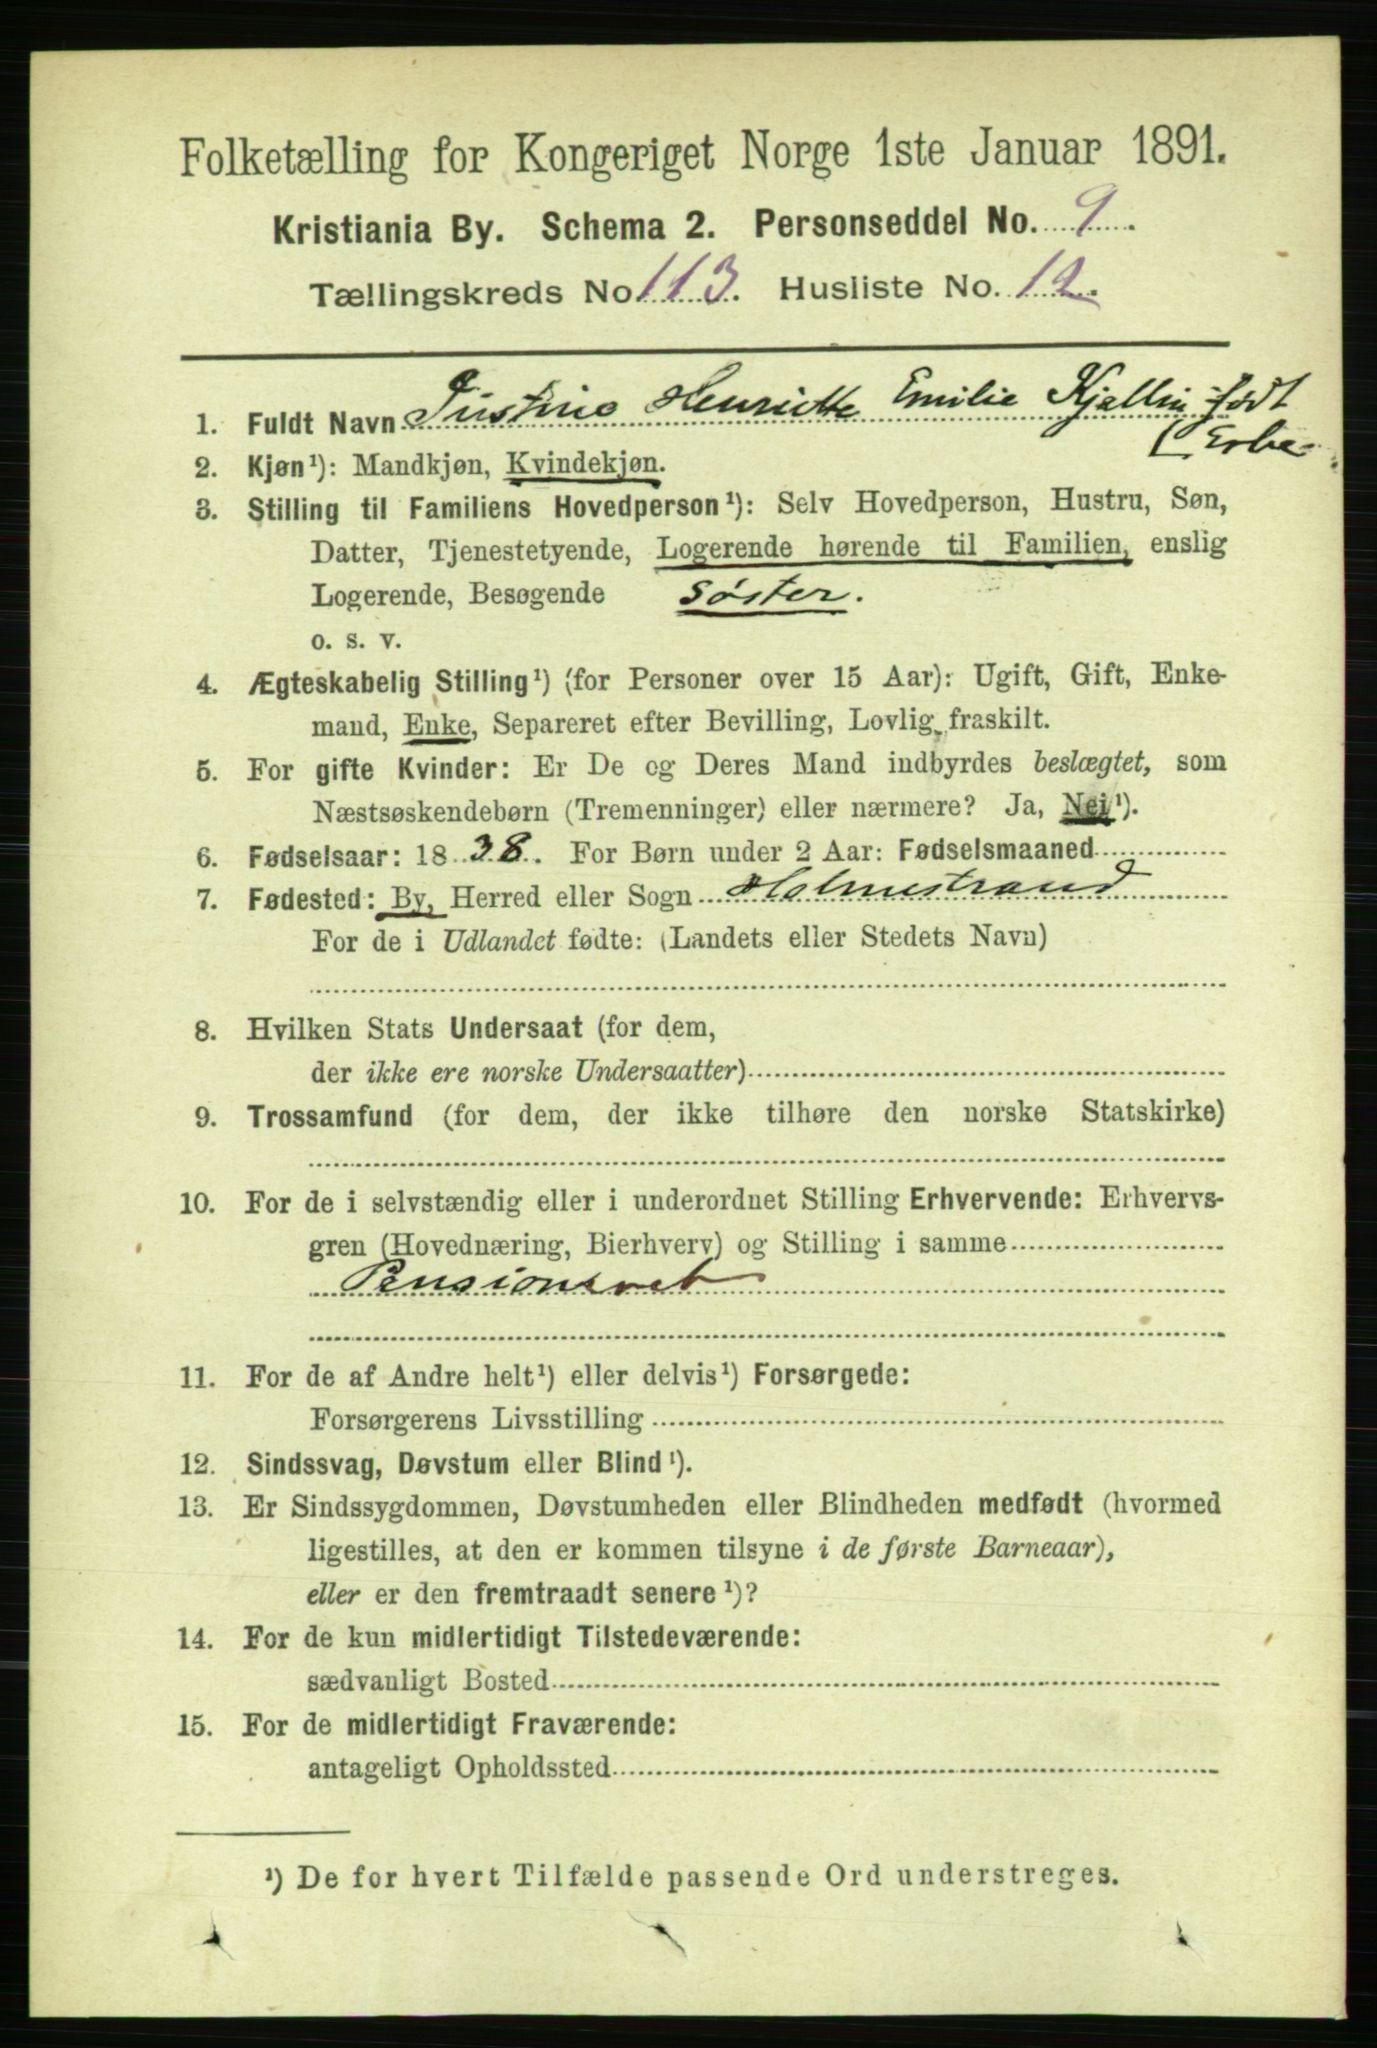 Folketælling for Kongeriget Norge 1ste Januar 1891.
Kristiania By. Schema 2. Personseddel No. 9.
Tællingskreds No 113. Husliste No. 12.
1. Fuldt Navn Justine Henriette Emilie Kjellin født
Erbe
2. Kjøn¹): Mandkjøn, Kvindekjøn.
3. Stilling til Familiens Hovedperson¹): Selv Hovedperson, Hustru, Søn,
Datter, Tjenestetyende, Logerende hørende til Familien, enslig
Logerende, Besøgende søster.
o. s. v.
4. Ægteskabelig Stilling¹) (for Personer over 15 Aar): Ugift, Gift, Enke-
mand, Enke, Separeret efter Bevilling, Lovlig fraskilt.
5. For gifte Kvinder: Er De og Deres Mand indbyrdes beslægtet, som
Næstsøskendebørn (Tremenninger) eller nærmere? Ja, Nei¹).
6. Fødselsaar: 1838. For Børn under 2 Aar: Fødselsmaaned
7. Fødested: By, Herred eller Sogn Holmestrand
For de i Udlandet fødte: (Landets eller Stedets Navn)
8. Hvilken Stats Undersaat (for dem,
der ikke ere norske Undersaatter)
9. Trossamfund (for dem, der ikke tilhøre den norske Statskirke)
10. For de i selvstændig eller i underordnet Stilling Erhvervende: Erhvervs-
gren (Hovednæring, Bierhverv) og Stilling i samme
11. For de af Andre helt¹) eller delvis¹) Forsørgede:
Forsørgerens Livsstilling
12. Sindssvag, Døvstum eller Blind¹).
13. Er Sindssygdommen, Døvstumheden eller Blindheden medfødt (hvormed
ligestilles, at den er kommen tilsyne i de første Barneaar),
eller er den fremtraadt senere¹)?
14. For de kun midlertidigt Tilstedeværende:
sædvanligt Bosted
15. For de midlertidigt Fraværende:
antageligt Opholdssted
¹) De for hvert Tilfælde passende Ord understreges.